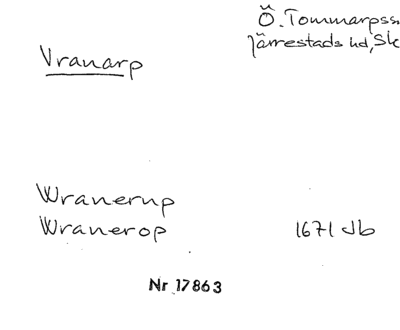 Ö. Tommarps sn
Järrestads hd, Sk
Vranarp
Wranerup
Wranerop 1671 Jb
Nr 17863